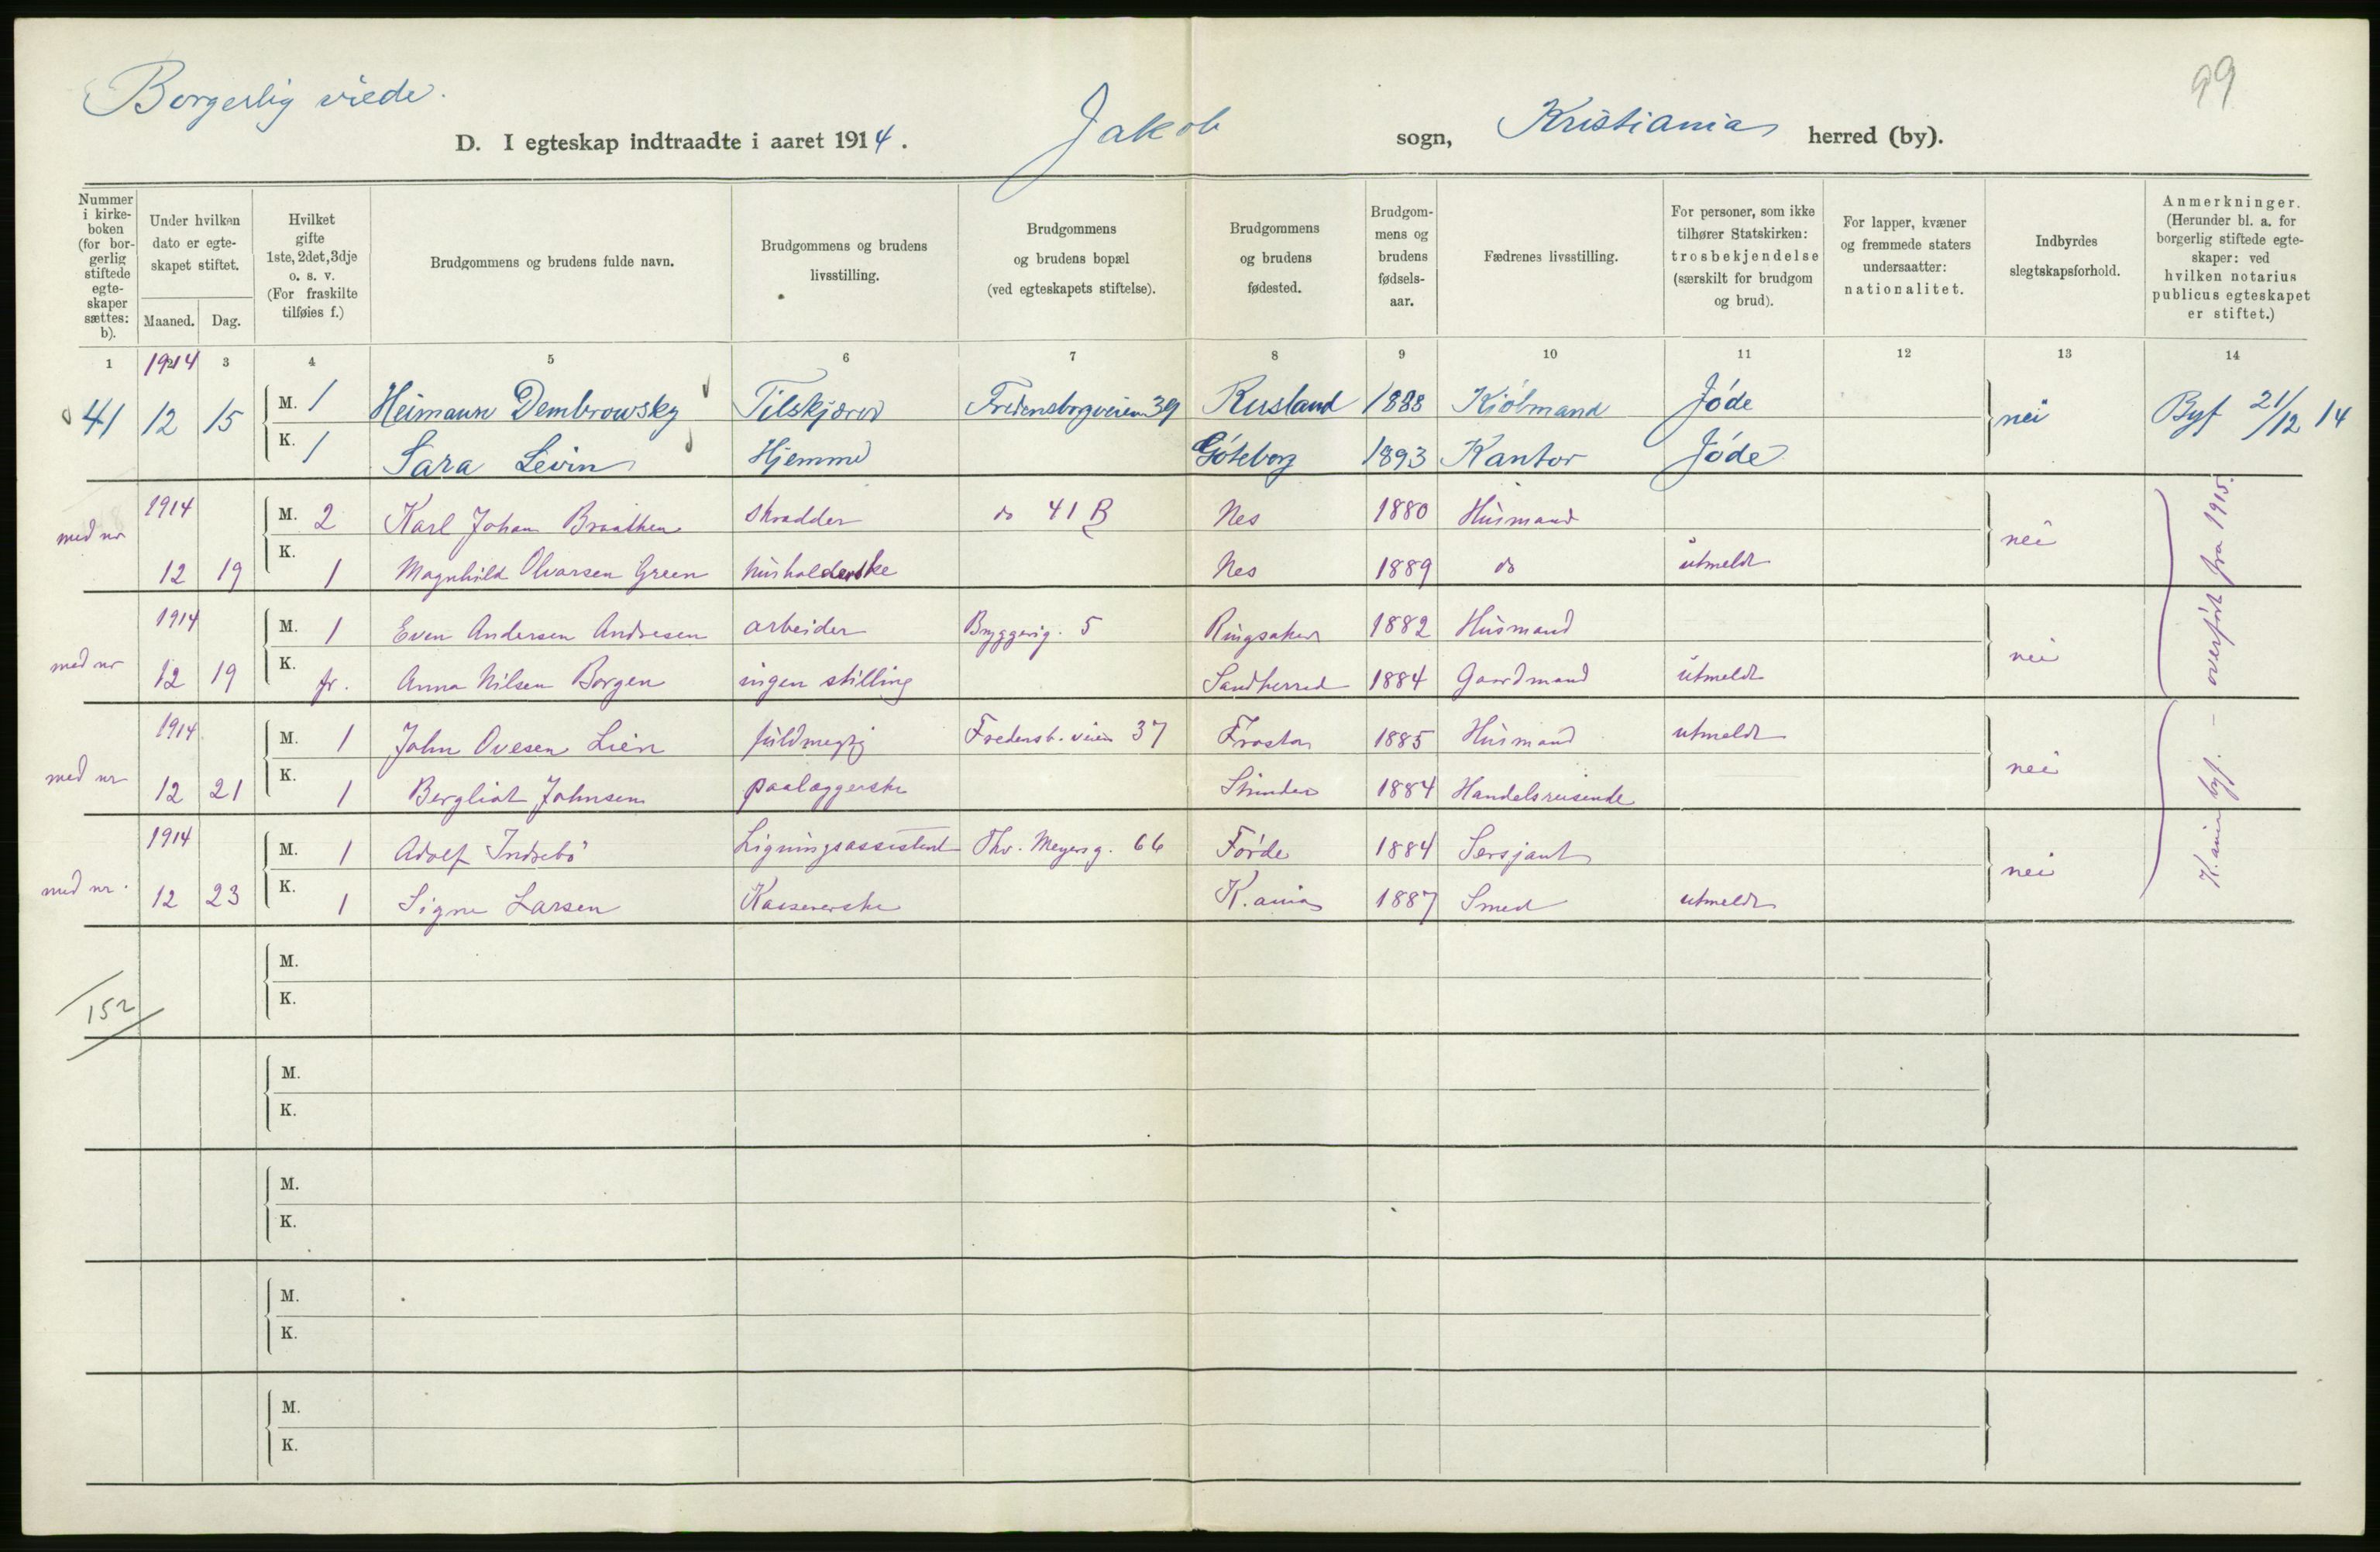 Borgerlig viede.
99
D. I egteskap indtraadte i aaret 1914. Jakob sogn, Kristiania herred (by).
Nummer i kirkeboken (for borgerlig stiftede egteskaper sættes: b).
Under hvilken dato er egteskapet stiftet.
Maaned. Dag.
Hvilket gifte 1ste, 2det, 3dje o. s. v. (For fraskilte tilføies f.)
Brudgommens og brudens fulde navn.
Brudgommens og brudens livsstilling.
Brudgommens og brudens bopæl (ved egteskapets stiftelse).
Brudgommens og brudens fødested.
Brudgommens og brudens fødselsaar.
Fædrenes livsstilling.
For personer, som ikke tilhører Statskirken: trosbekjendelse (særskilt for brudgom og brud).
For lapper, kvæner og fremmede staters undersaatter: nationalitet.
Indbyrdes slegtskapsforhold.
Anmerkninger. (Herunder bl. a. for borgerlig stiftede egteskaper: ved hvilken notarius publicus egteskapet er stiftet.)
1 1914 3 4 5 6 7 8 9 10 11 12 13 14
41 12 15 M. 1 Heimann Dembrowsky Tilskjærer Fredensborgveien 39 Rusland 1888 Kjöbmand Jøde nei Byf 21/12 14
K. 1 Sara Levin Hjemme Göteborg 1893 Kantor Jøde
1914 M. 2 Karl Johan Braathen Skrædder do 41 B Nes 1880 Husmand
med nr 12 19 K. 1 Magnhild Olvarsen Green husholderske Nes 1889 do utmeldt nei
1914 M. 1 Even Andersen Andresen arbeider Bryggerig. 5 Ringsaker 1882 Husmand
med nr 12 19 K. fr. Anna Nilsen Borgen ingen stilling Sandherred 1884 Gaardmand utmeldt nei
1914 M. 1 John Ovesen Lien fuldmegtig Fredensb. veien 37 Frosta 1885 Husmand utmeldt
med nr 12 21 K. 1 Bergliot Johnsen paalæggerske Strinden 1884 Handelsreisende nei
1914 M. 1 Adolf Indrebö Ligningsassistent Thv. Meyersg. 66 Förde 1884 Sersjant
med nr. 12 23 K. 1 Signe Larsen Kassererske K.ania 1887 Smed utmeldt nei
K.ania byf. – overført fra 1915.
M.
K.
152
M.
K.
M.
K.
M.
K.
M.
K.